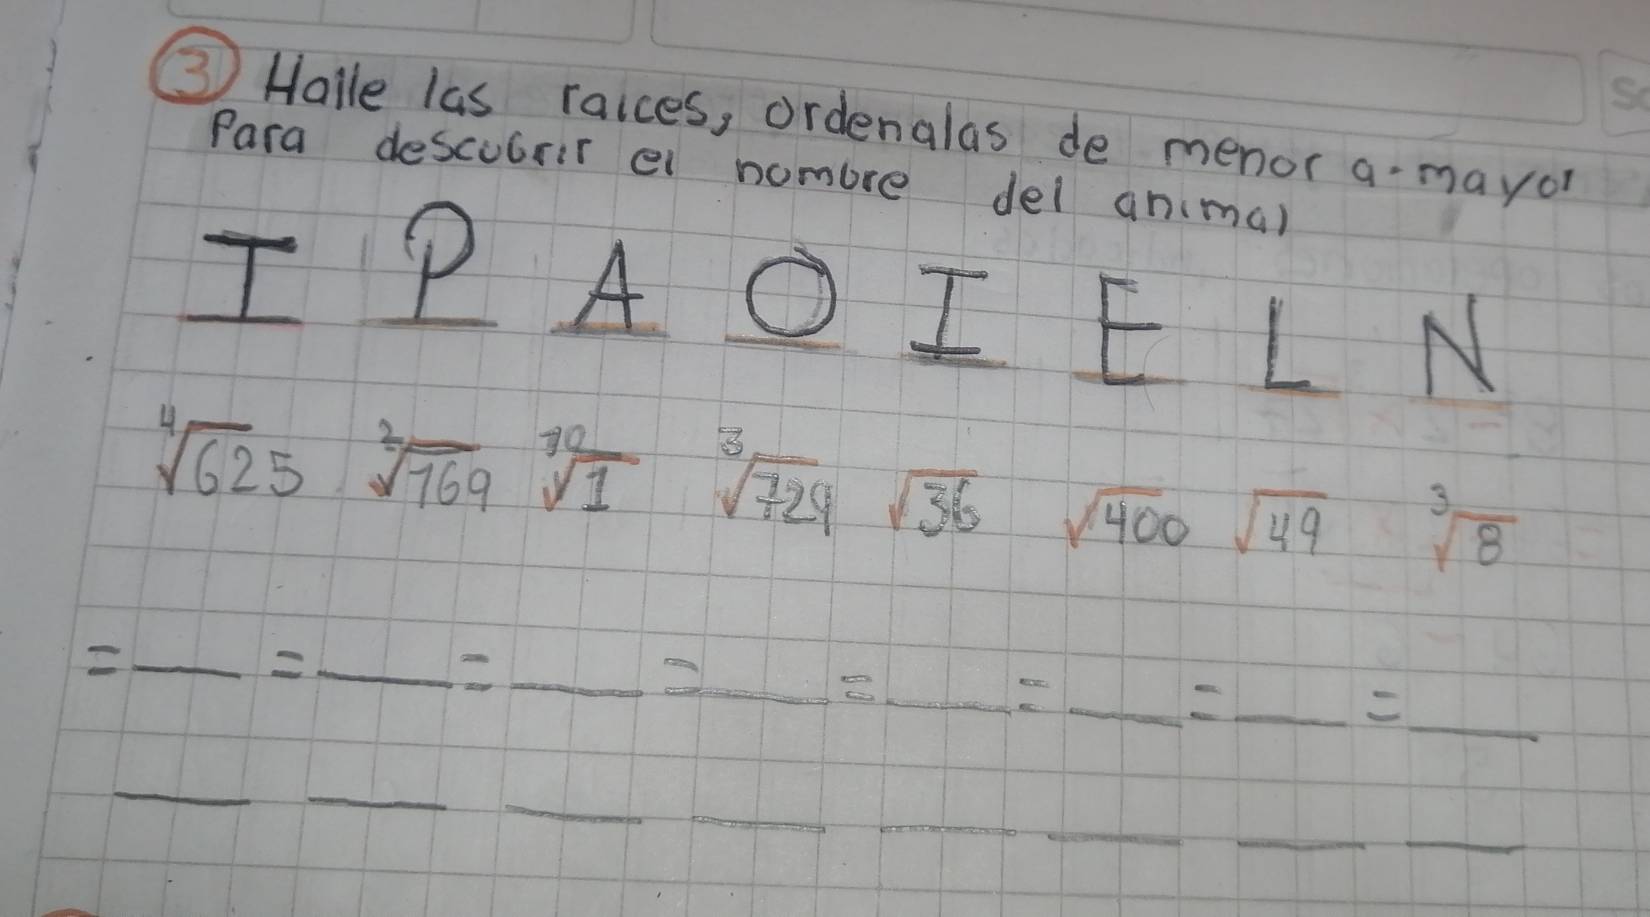 3 Halle las raices, ordenalas de menor a mayor
Para descubrir el nombre del animal
I P A O I E L N
⁴√625 ²√169 ¹⁰√1 ³√729 √36 √400 √49 ³√8
= = = = = = = =